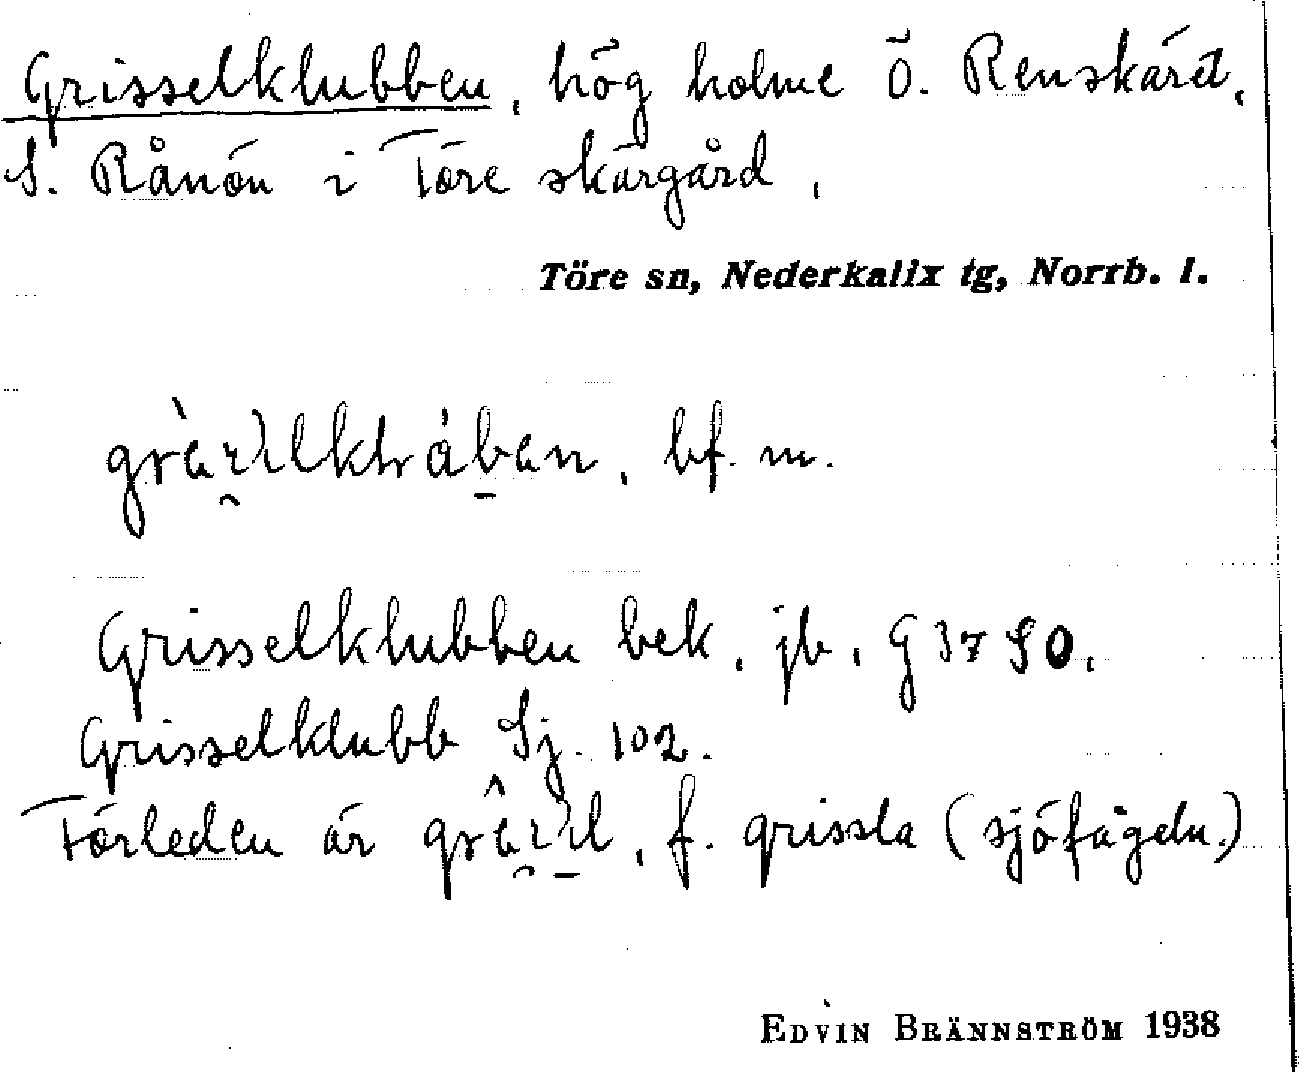 Grisselklubben, hög holme Ö. Renskäret,
S. Rånön i Töre skärgård,
Töre sn, Nederkalix tg, Norrb. l.
bf. m.
Grisselklubben bek. jb, G 3790,
Grisselklubb Sj. 102.
Förleden är f. grissla (sjöfågeln)
EDVIN BRÄNNSTRÖM 1938